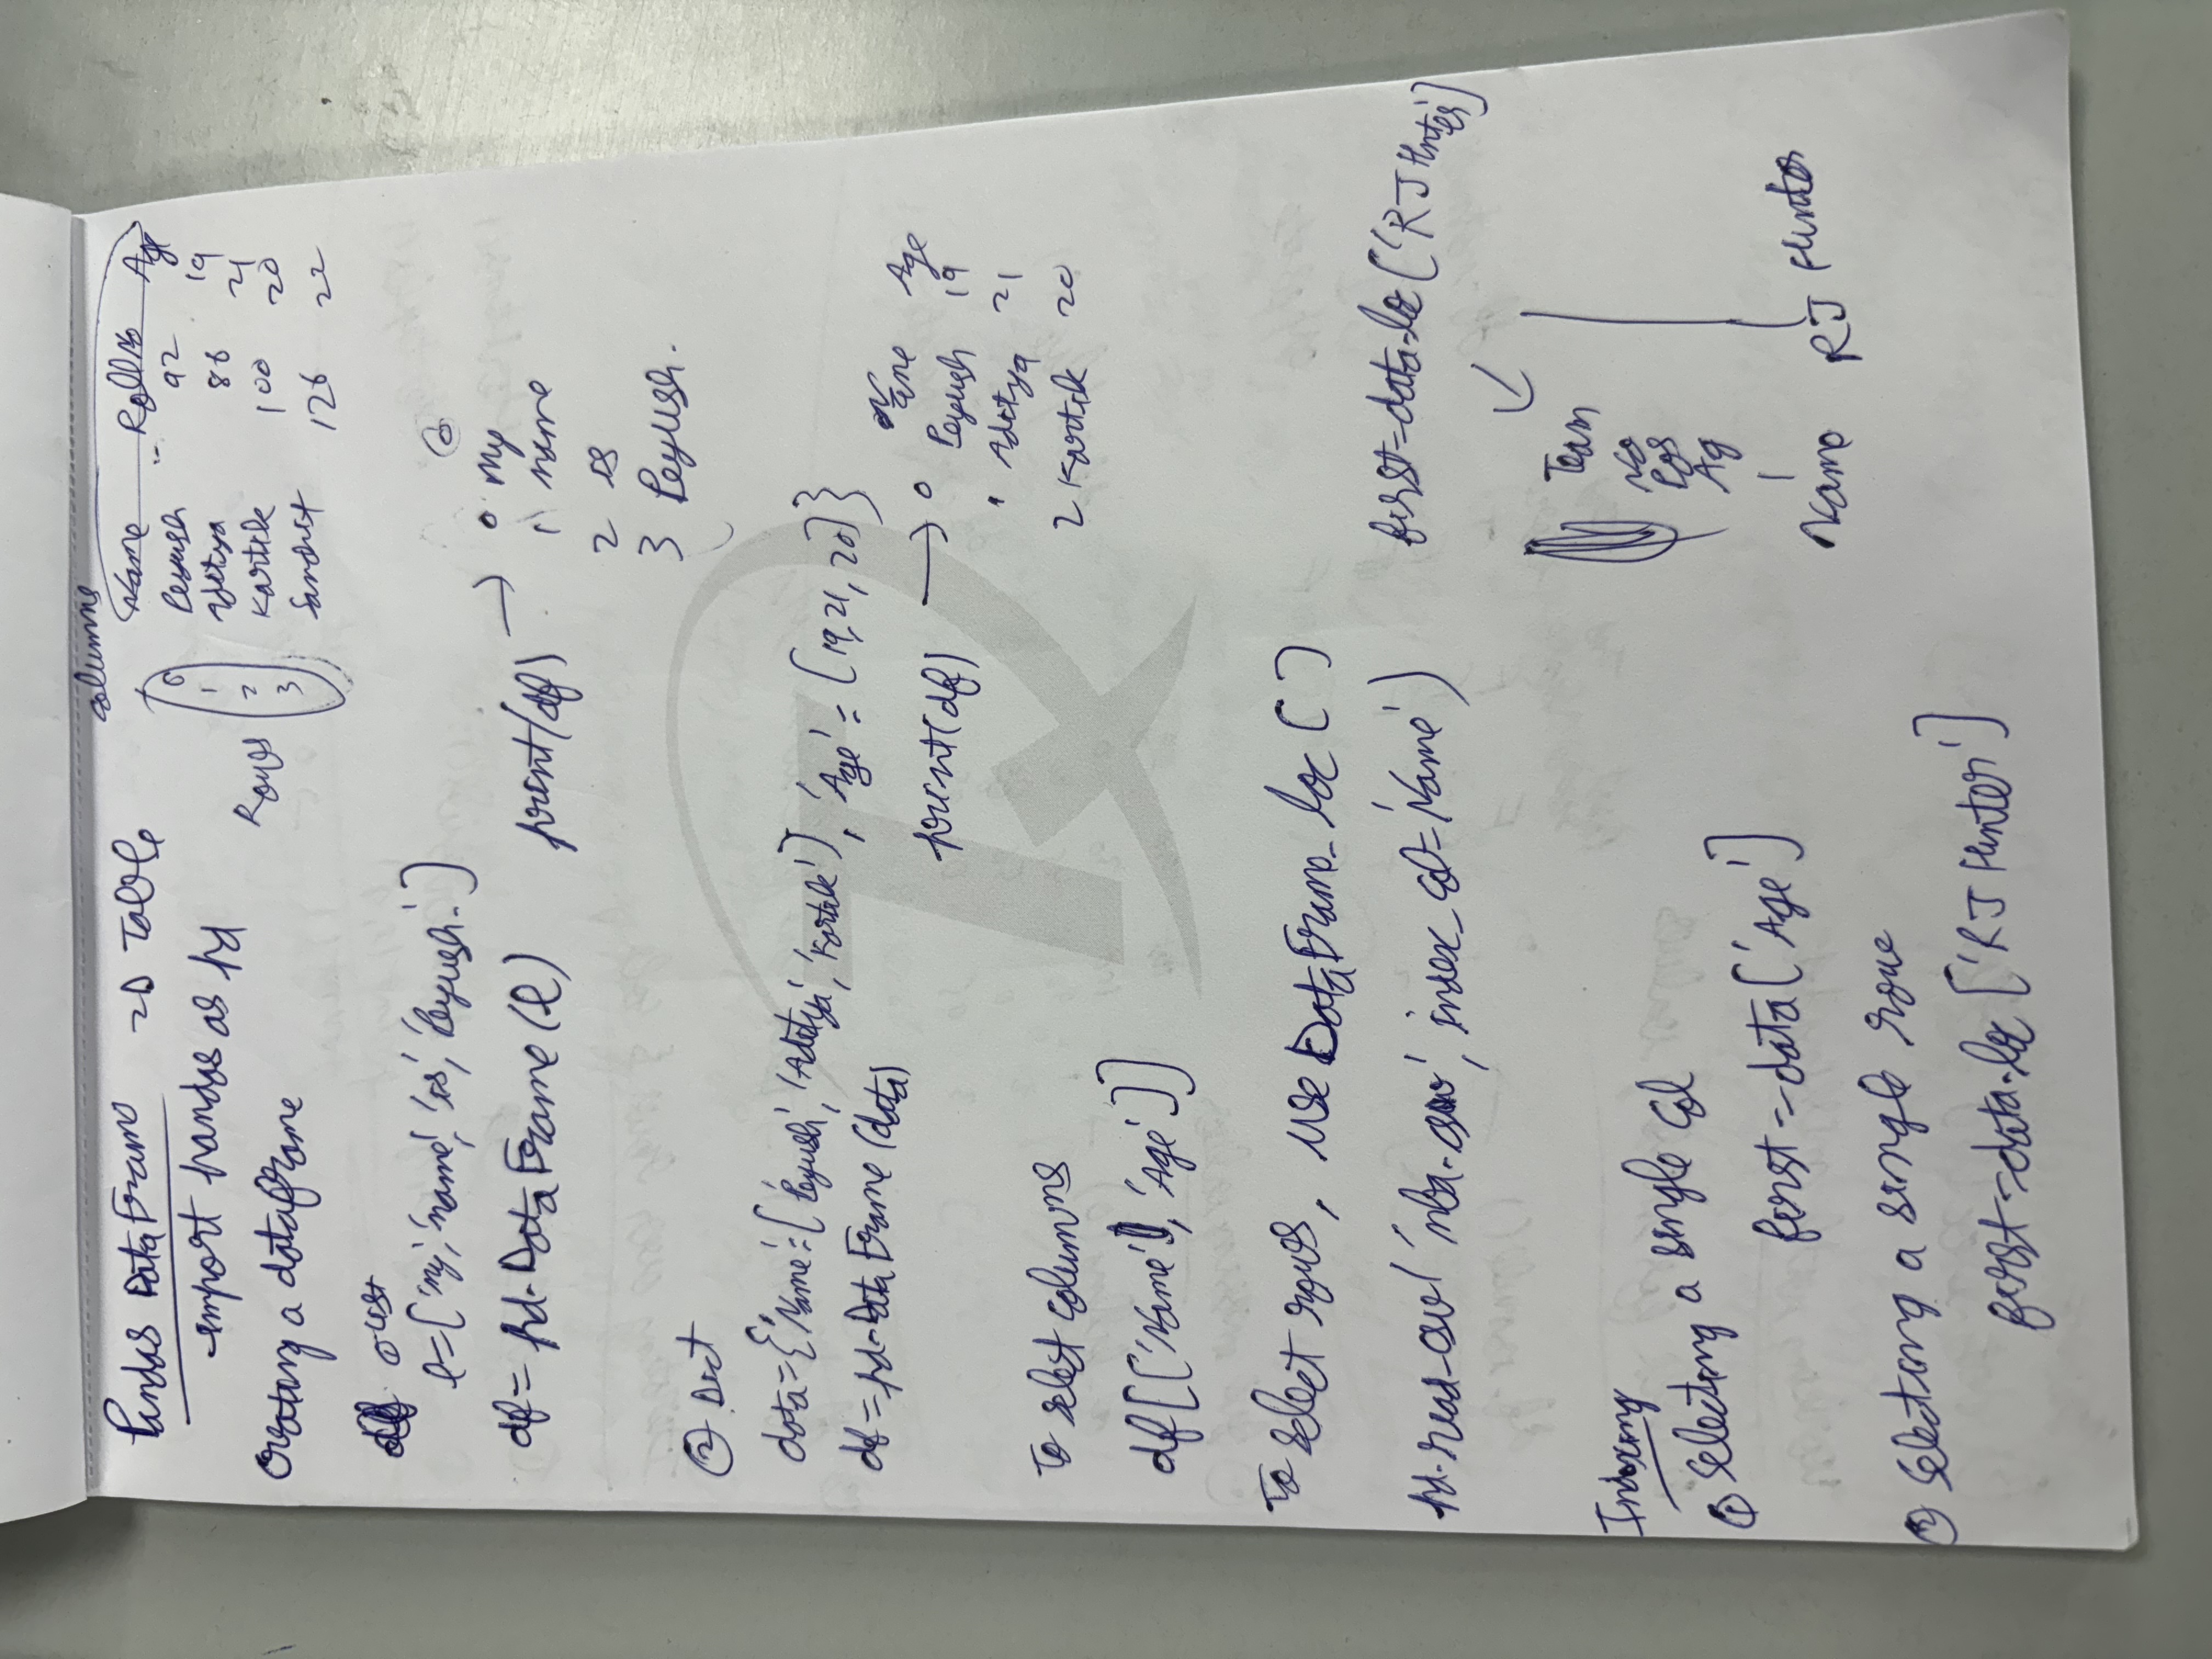 Pandas DataFrame 2D Table
import pandas as pd
Creating a dataframe
columns
Name Roll No Age
Rows
0 Peyush 92 19
1 Aditya 86 21
2 Kartik 100 20
3 Sanchit 126 22
① List
l=['my','name','is','Peyush.']
df= pd.DataFrame(l) print(df) →
0
0 My
1 name
2 is
3 Peyush.
② Dict
data={'Name':['Peyush','Aditya','Kartik'], 'Age'=[19,21,20]}
df=pd.DataFrame(data)
print(df) →
Name Age
0 Peyush 19
1 Aditya 21
2 Kartik 20
To select columns
df[['Name','Age']]
To select rows, use DataFrame.loc[]
pd.read_csv('nba.csv', index_col='Name')
first=data.loc['RJ Hnter']
Team
No
Pos
Ag
Name RJ Hunter
Indexing
① Selecting a single col
first=data['Age']
② Selecting a single row
first=data.loc['RJ Hunter']